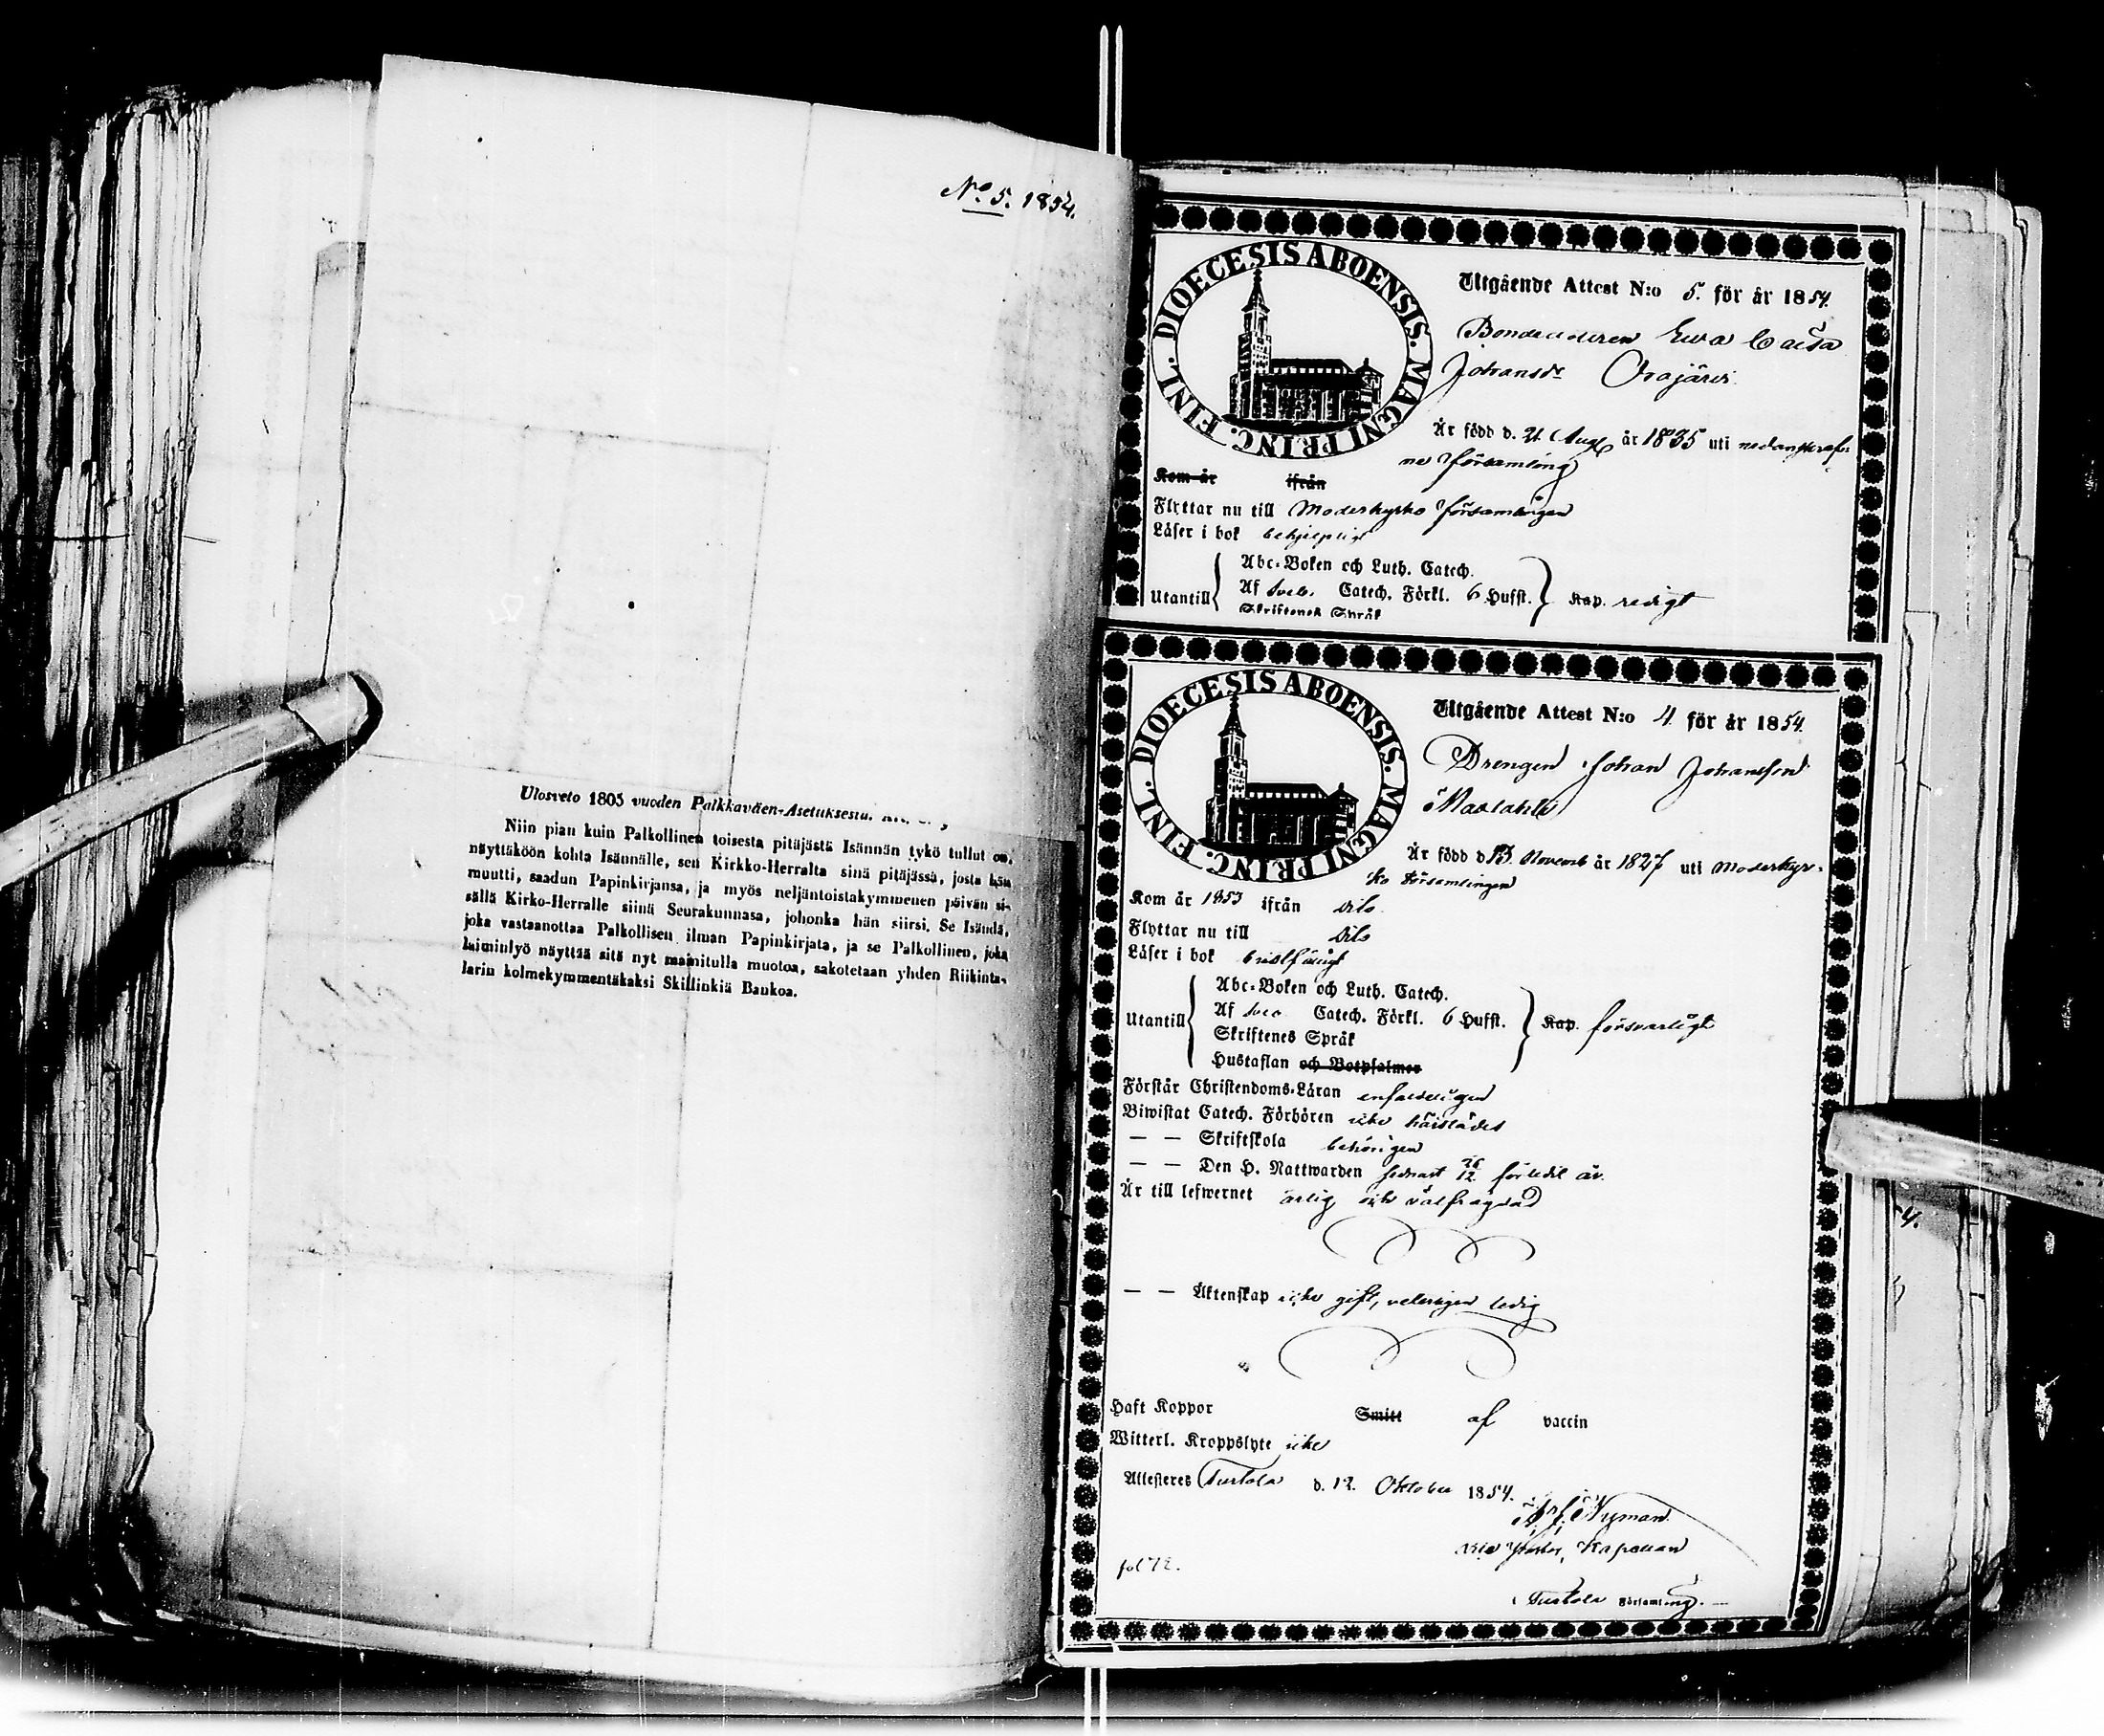 No. 5. 1854.
Ulosveto 1805 vuoden Palkkaväen-Asetuksesta.
Niin pian kuin Palkollinen toisesta pitäjästä Isännän tykö tullut on,
näyttäköön kohta Isännälle, sen Kirkko-Herralta sinä pitäjässä, josta hän
muutti, saadun Papinkirjansa, ja myös neljäntoistakymmenen päivän si-
sällä Kirko-Herralle siinä Seurakunnasa, johonka hän siirsi. Se Isändä,
joka vastaanottaa Palkollisen ilman Papinkirjata, ja se Palkollinen, joka
laiminlyö näyttää sitä nyt mainitulla muotoa, sakotetaan yhden Riikinta-
larin kolmekymmentäkaksi Skillinkiä Bankoa.
DIOECESIS ABOENSIS. MAGNI PRINC. FINL.
Utgående Attest N:o 5. för år 1854.
Bondedotren Ewa Caisa
Johansdr Orajärvi.
Är född d. 21 Aug. år 1835 uti nedanskrefv
ne församling
Kom år ifrån
Flyttar nu till Moderkyrko församlingen
Läser i bok behjelpligt
Abc-Boken och Luth. Catech.
Utantill Af Sveb. Catech. Förkl. 6 Hufst. Kap. redigt
Skriftenes Språk
DIOECESIS ABOENSIS. MAGNI PRINC. FINL.
Utgående Attest N:o 4. för år 1854.
Drengen Johan Johansson
Är född d. 13. Novemb år 1827 uti Moderkyr-
ko församlingen
Kom år 1853 ifrån dito
Flyttar nu till dito
Läser i bok
Abc-Boken och Luth. Catech.
Utantill Af Sveb. Catech. Förkl. 6 Hufst. Kap. försvarligt
Skriftenes Språk
Hustaflan och Botpsalmer
Förstår Christendoms-Läran enfaldeligen
Biwistat Catech. Förhören icke härstädes
— — Skriftskola behörigen
— — Den H. Nattwarden senast 26/12 förledit år.
Är till lefwernet ärlig och välfrägdad
— — Äktenskap icke gift, veterligen ledig
Haft Koppor Smitt af vaccin
Witterl. Kroppslyte icke
Attesteres Turtola d. 12. Oktober 1854.
Nyman
Kapellan
fol 72.
i Turtola Församling.